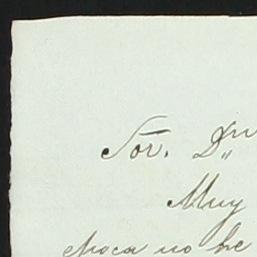 Sor. Dn
Muy
epoca no he